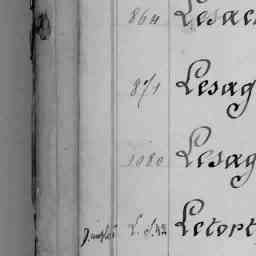 864 Lesac
871 Lesag
1080 Lesag
L. S. 42 Letort